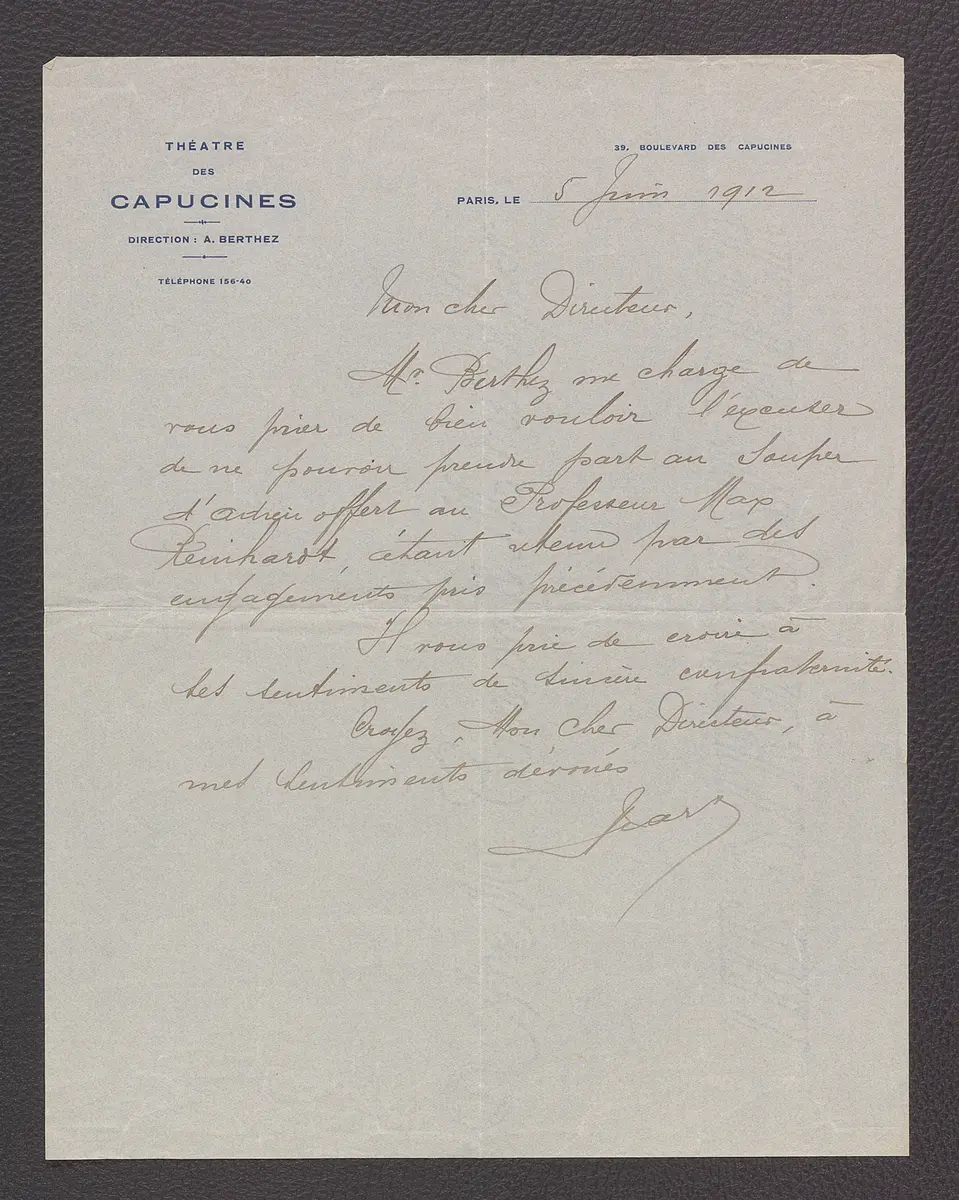 THÉATRE
DES
CAPUCINES
DIRECTION : A. BERTHEZ
TÉLÉPHONE 156-40
39, BOULEVARD DES CAPUCINES
PARIS, LE 5 Juin 1912
Mon cher Directeur,
Mr. Berthez me charge de
vous prier de bien vouloir l'excuser
de ne pouvoir prendre part au Souper
d'adieu offert au Professeur Max
Reinhardt, étant retenu par des
engagements pris précédemment.
Il vous prie de croire à
ses sentiments de sincère confraternité.
Croyez, Mon cher Directeur, à
mes sentiments dévoués